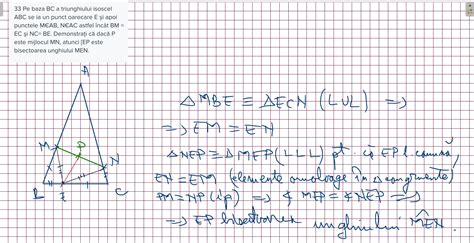 33 Pe baza BC a triunghiului isoscel
ABC se ia un punct oarecare E și apoi
punctele M∈AB, N∈AC astfel încât BM =
EC și NC= BE. Demonstrați că dacă P
este mijlocul MN, atunci [EP este
bisectoarea unghiului MEN.
A
M
P
N
B
E
C
△MBE ≡ △ECN (LUL) =>
=> EM = EN
△NEP ≡ △MEP (LLL) pt. că EP l. comună,
EN = EM (elemente omoloage în △ congruente)
PM = NP (ip) => ∢ MEP = ∢ NEP =>
=> EP bisectoarea unghiului MEN.